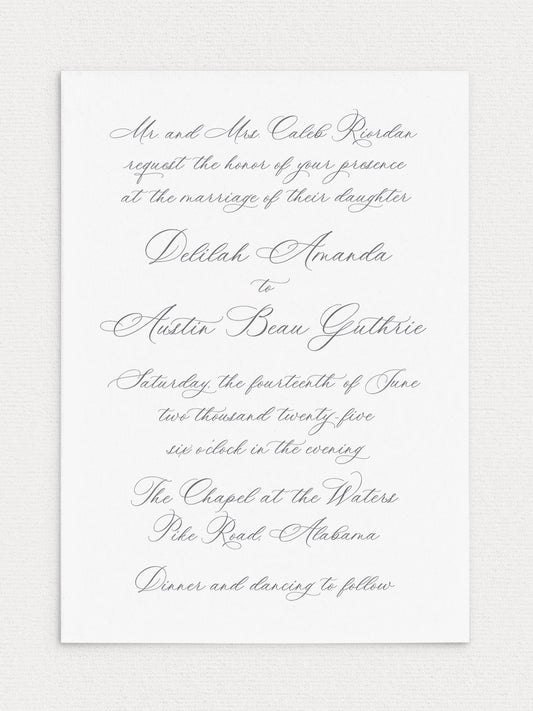 Mr. and Mrs. Caleb Riordan
request the honor of your presence
at the marriage of their daughter
Delilah Amanda
to
Austin Beau Guthrie
Saturday, the fourteenth of June
two thousand twenty-five
six o'clock in the evening
The Chapel at the Waters
Pike Road, Alabama
Dinner and dancing to follow